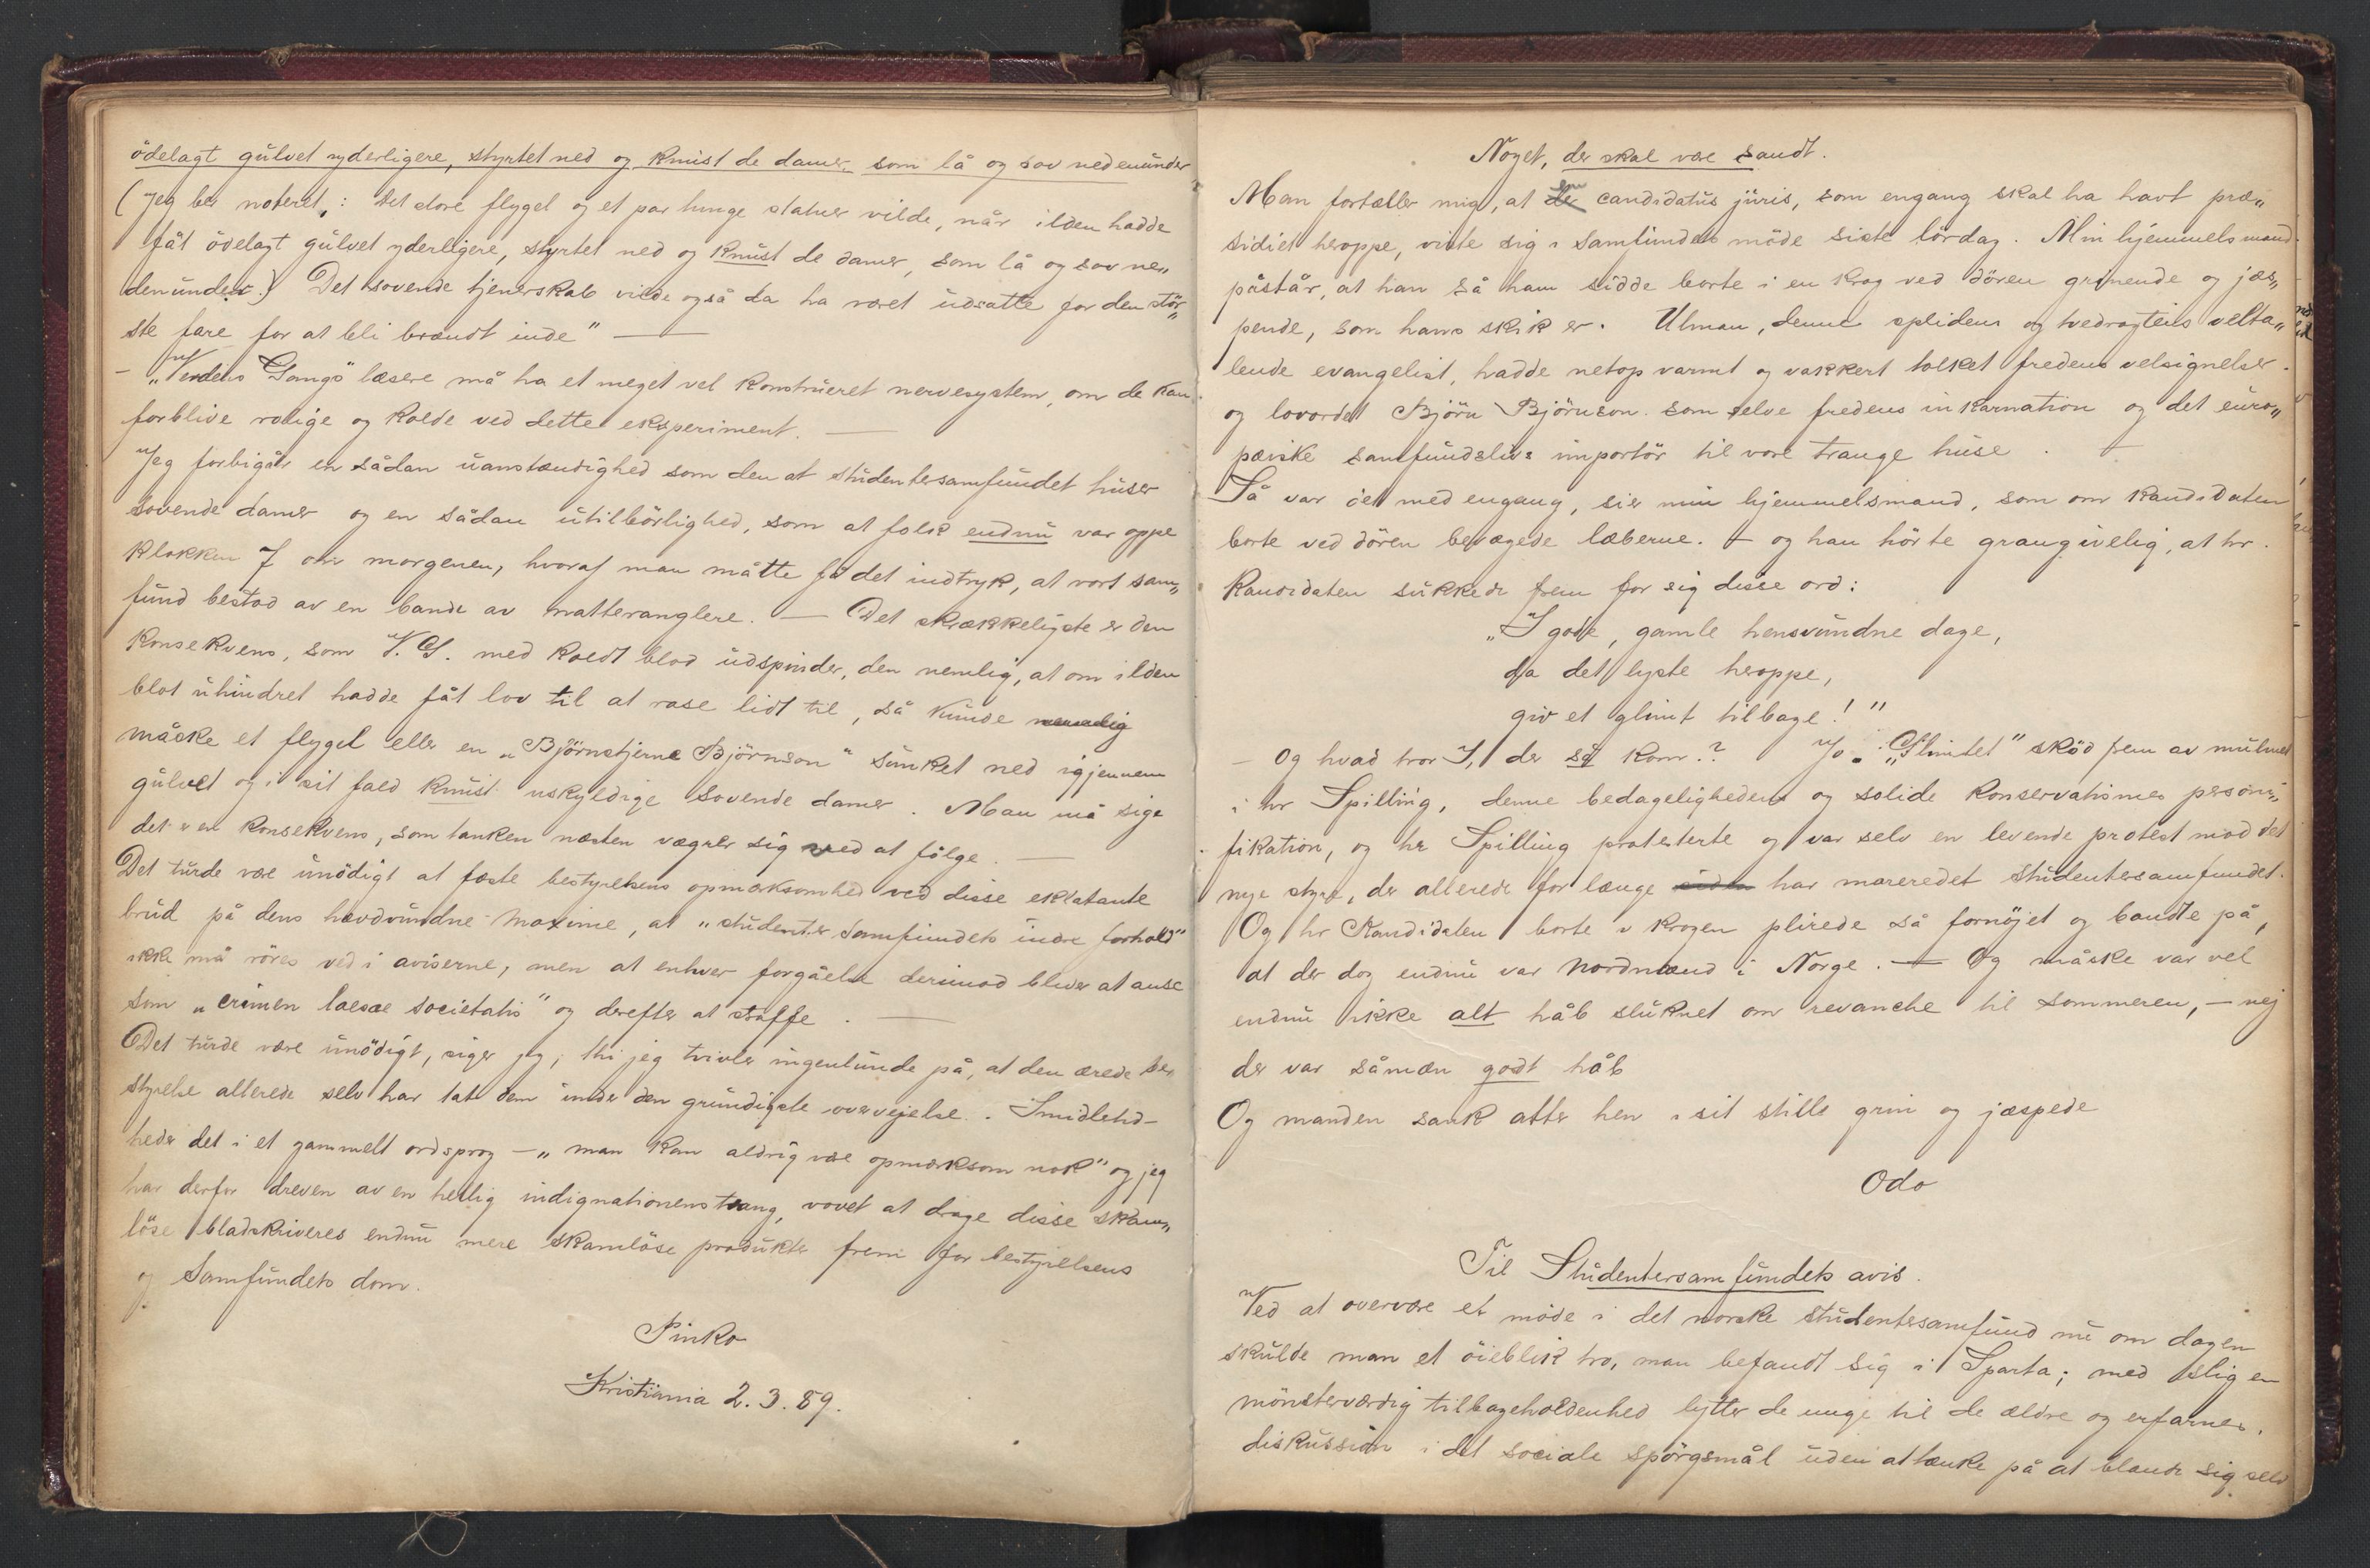 ödelagt gulvet yderligere, styrtet ned og knust de damer som lå og sov nedenunder
(Jeg ber noteret: det store flygel og et par tunge statuer vilde, når ilden hadde
fåt ödelagt gulvet yderligere, styrtet ned og knust de damer, som lå og sov ne„
denunder.) Det sovende tjenerskab vilde også da ha været udsatte for den stör„
ste fare for at bli brændt inde" —
– „Verdens Gangs" læsere må ha et meget vel konstrueret nervesystem, om de kan
forblive rolige og kolde ved dette eksperiment. —
Jeg forbigår en sådan uanstændighed som den at studentersamfundet huser
sovende damer og en sådan utilbörlighed, som at folk endnu var oppe
klokken 7 om morgenen, hvoraf man måtte få det indtryk, at vort sam„
fund bestod av en bande av natteranglere. — Det skrækkeligste er den
konsekvens, som V. G. med koldt blod udspinder, den nemlig, at om ilden
blot uhindret hadde fåt lov til at rase lidt til, så kunde
måske et flygel eller en „Björnstjerne Björnson" sunket ned igjennem
gulvet og i sit fald knust uskyldige sovende damer. Man må sige
det er en konsekvens, som tanken næsten vægrer sig ved at fölge. —
Det turde være unödigt at fæste bestyrelsens opmærksomhed ved disse eklatante
brud på dens hævdvundne maxime, at „studentersamfundets indre forhold"
ikke må röres ved i aviserne, men at enhver forgåelse derimod bliver at anse
som „crimen laesae societatis" og derefter at straffe. —
Det turde være unödigt, siger jeg, thi jeg tvivler ingenlunde på, at den ærede be„
styrelse allerede selv har tat dem under den grundigste overvejelse. Imidlertid –
heder det i et gammelt ordsprog – „man kan aldrig være opmærksom nok" og jeg
har derfor dreven av en hellig indignationens trang, vovet at drage disse skam„
löse bladskriveres endnu mere skamlöse produkter frem for bestyrelsens
og Samfundets dom.
Pinko
Kristiania 2.3.89.
Noget, der skal være sandt.
Man fortæller mig, at en candidatus juris, som engang skal ha havt præ„
sidiet heroppe, viste sig i Samfundets möde siste lördag. Min hjemmelsmand
påstår, at han så ham sidde borte i en krog ved dören grinende og jæs„
pende, som hans skik er. Ulman, denne splidens og tvedragtens velta„
lende evangelist, hadde netop varmt og vakkert tolket fredens velsignelser
og lovordet Björn Björnson som selve fredens inkarnation og det euro„
pæiske samfundslivs importör til vore trange huse. —
Så var det med engang, sier min hjemmelsmand, som om kandidaten
borte ved dören bevægede læberne. – og han hörte grangivelig, at hr.
kandidaten sukkede frem for sig disse ord:
„I gode, gamle hensvundne dage,
da det lyste heroppe,
giv et glimt tilbage!"
– Og hvad tror I, der så kom?? Jo. „Glimtet" sköd frem av mulmet
i hr Spilling, denne bedagelighedens og solide konservatismes personi„
fikation, og hr Spilling protesterte og var selv en levende protest mod det
nye styre, der allerede for længe siden har mareredet studentersamfundet.
Og hr Kandidaten borte i krogen plirede så fornöjet og bandte på,
at der dog endnu var nordmænd i Norge. — Og måske var vel
endnu ikke alt håb slukket om revanche til sommeren, – nej
der var såmæn godt håb
Og manden sank atter hen i sit stille grin og jæspede
Odo
Til Studentersamfundets avis.
Ved at overvære et möde i det norske studentersamfund nu om dagen
skulde man et öieblik tro, man befandt sig i Sparta; med slig en
mönsterværdig tilbageholdenhed lytter de unge til de ældre og erfarnes
diskussion i det sociale spörgsmål uden at tænke på at blande sig selv